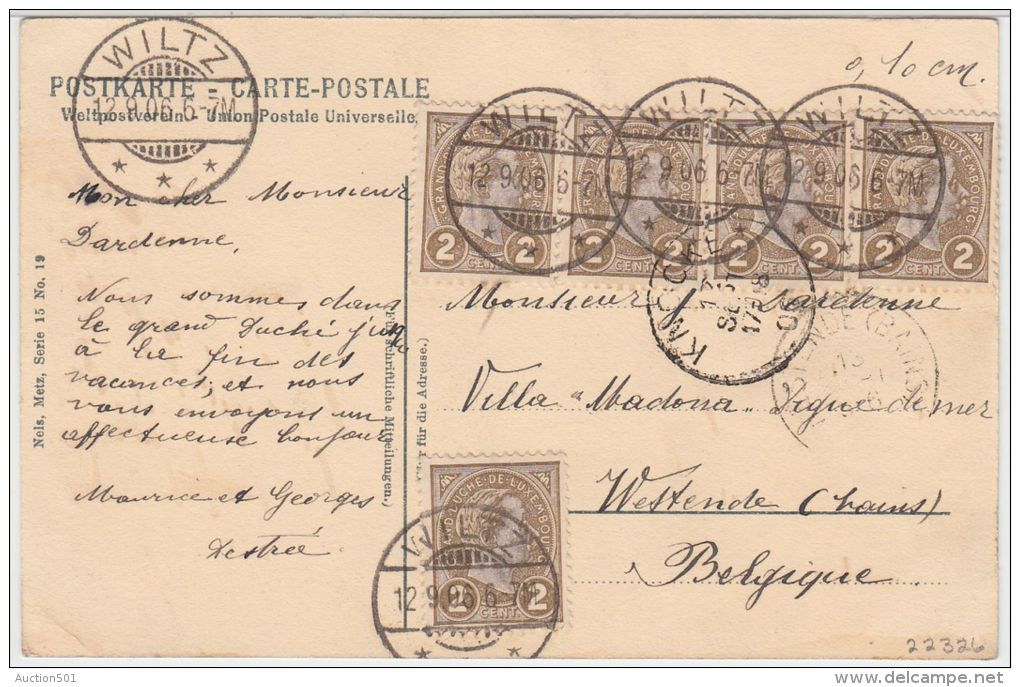 WILTZ
12.9.06.6-7M
POSTKARTE - CARTE-POSTALE
Weltpostverein - Union Postale Universelle.
0,10 cm.
Mon cher Monsieur
Dardenne,
Nous sommes dans
le grand Duché
à la fin des
vacances, et nous
vous envoyons un
affectueuse bonjour
Maurice et Georges
Destrée
Nels, Metz, Serie 15 No. 19
schriftliche Mitteilungen.)
für die Adresse.)
GRAND DUCHÉ DE LUXEMBOURG
2 2
CENT.
WILTZ
12.9.06.6-7M
WILTZ
12.9.06.6-7M
WILTZ
12.9.06.6-7M
KNOCKE
SEPT
17-18
Monsieur Dardenne
Villa "Madona" Digue de mer
Westende (bains)
Belgique
WILTZ
12.9.06.6-7M
2 2
CENT.
22326
Auction501
delcampe.net